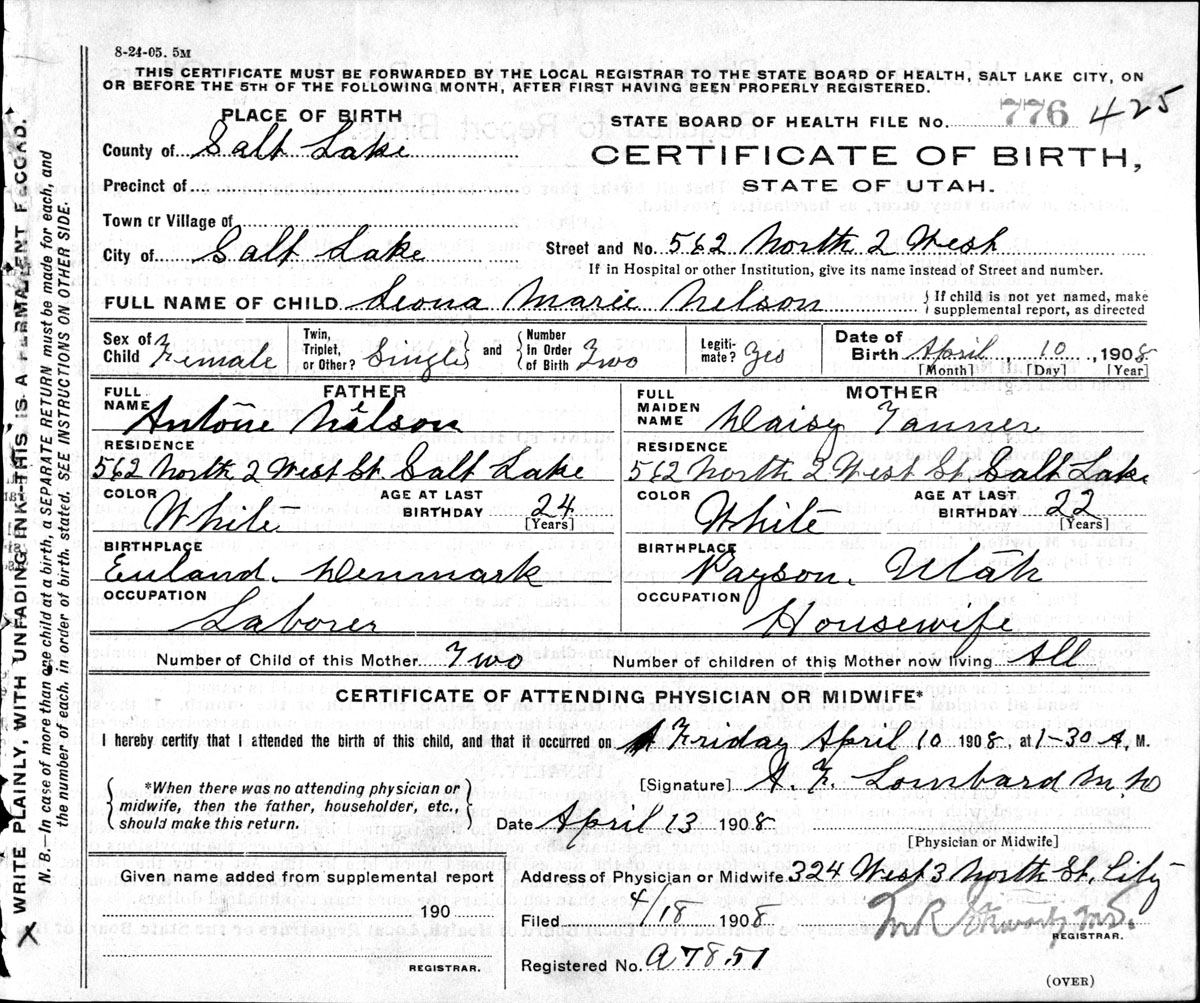 8-24-05. 5M
THIS CERTIFICATE MUST BE FORWARDED BY THE LOCAL REGISTRAR TO THE STATE BOARD OF HEALTH, SALT LAKE CITY, ON
OR BEFORE THE 5TH OF THE FOLLOWING MONTH, AFTER FIRST HAVING BEEN PROPERLY REGISTERED.
PLACE OF BIRTH
County of Salt Lake
Precinct of
Town or Village of
City of Salt Lake
STATE BOARD OF HEALTH FILE No. 776 425
CERTIFICATE OF BIRTH,
STATE OF UTAH.
Street and No. 562 North 2 West
If in Hospital or other Institution, give its name instead of Street and number.
FULL NAME OF CHILD Leona Marie Nelson { If child is not yet named, make
supplemental report, as directed
Sex of Child Female Twin, Triplet, or Other? Single and Number In Order of Birth Two Legiti- mate? Yes Date of Birth April, 10, 1908
[Month] [Day] [Year]
FATHER
FULL NAME Antone Nelson
RESIDENCE
562 North 2 West St. Salt Lake
COLOR White AGE AT LAST BIRTHDAY 24 [Years]
BIRTHPLACE
Euland. Denmark
OCCUPATION
Laborer
MOTHER
FULL MAIDEN NAME Daisy Tanner
RESIDENCE
562 North 2 West St. Salt Lake
COLOR White AGE AT LAST BIRTHDAY 22 [Years]
BIRTHPLACE
Payson. Utah
OCCUPATION
Housewife
Number of Child of this Mother Two Number of children of this Mother now living All
CERTIFICATE OF ATTENDING PHYSICIAN OR MIDWIFE*
I hereby certify that I attended the birth of this child, and that it occurred on Friday April 10 1908, at 1-30 A. M.
{ *When there was no attending physician or
midwife, then the father, householder, etc.,
should make this return. }
[Signature] A. F. Lombard M D
Date April 13 1908
[Physician or Midwife]
Given name added from supplemental report
190
REGISTRAR.
Address of Physician or Midwife 324 West 3 North St. City
Filed 4/18 1908
REGISTRAR.
Registered No. A7851
(OVER)
WRITE PLAINLY, WITH UNFADING INK—THIS IS A PERMANENT RECORD.
N. B.—In case of more than one child at a birth, a SEPARATE RETURN must be made for each, and
the number of each, in order of birth, stated. SEE INSTRUCTIONS ON OTHER SIDE.
X